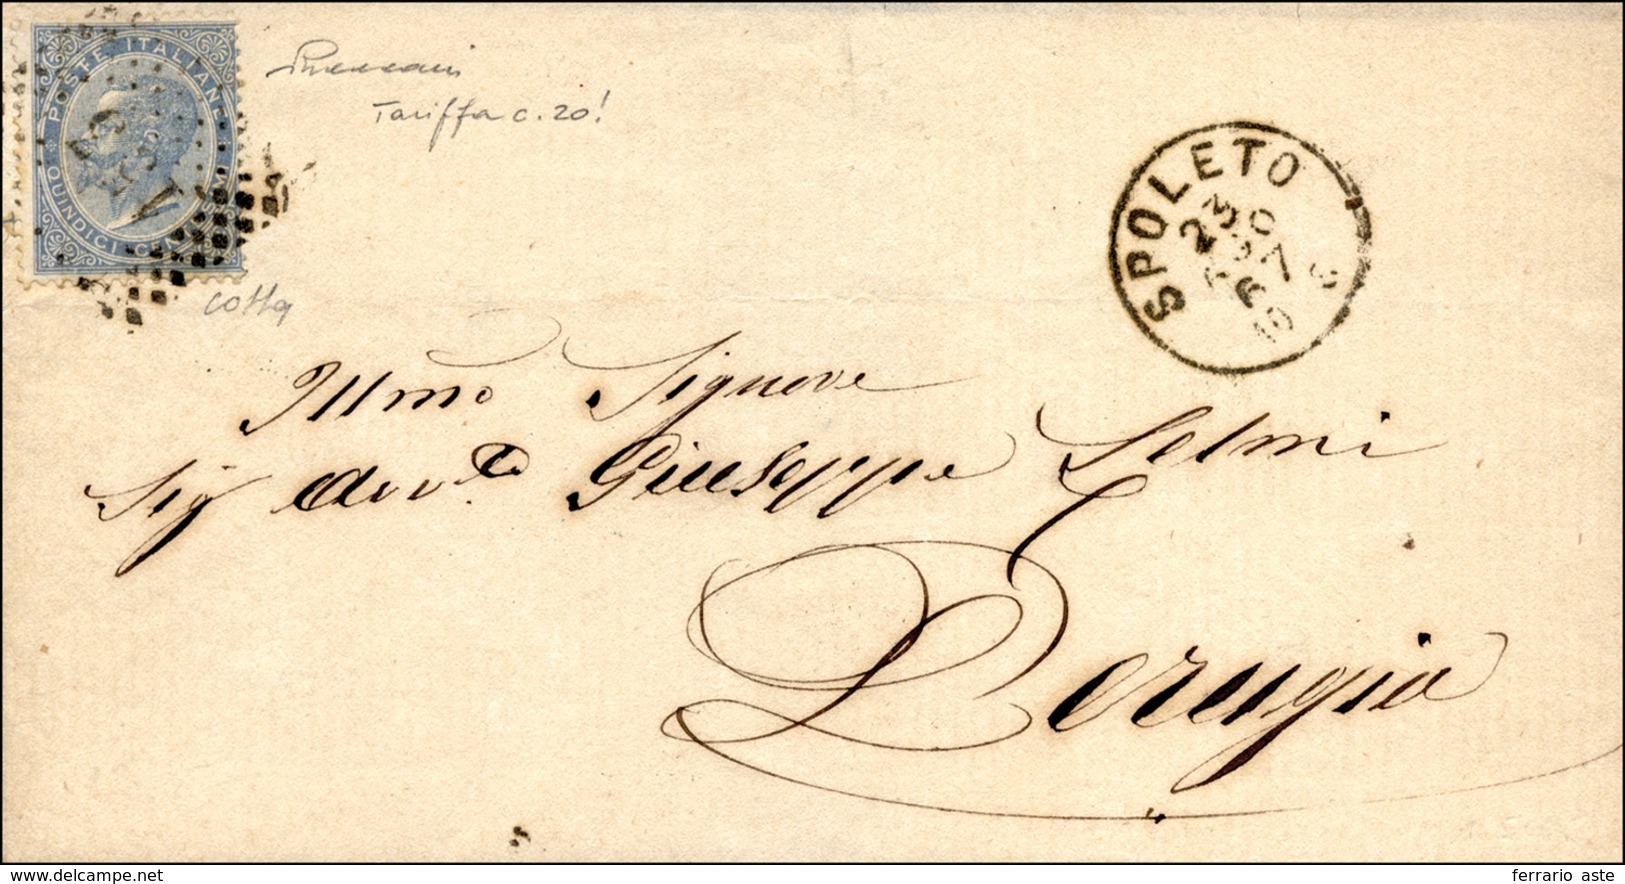 POSTE ITALIANE
QUINDICI CENTESIMI
Tariffa c. 20!
cotta
SPOLETO
Illmo Signore
Sig Avv.to Giuseppe Selmi
Perugia
www.delcampe.net
ferrario aste